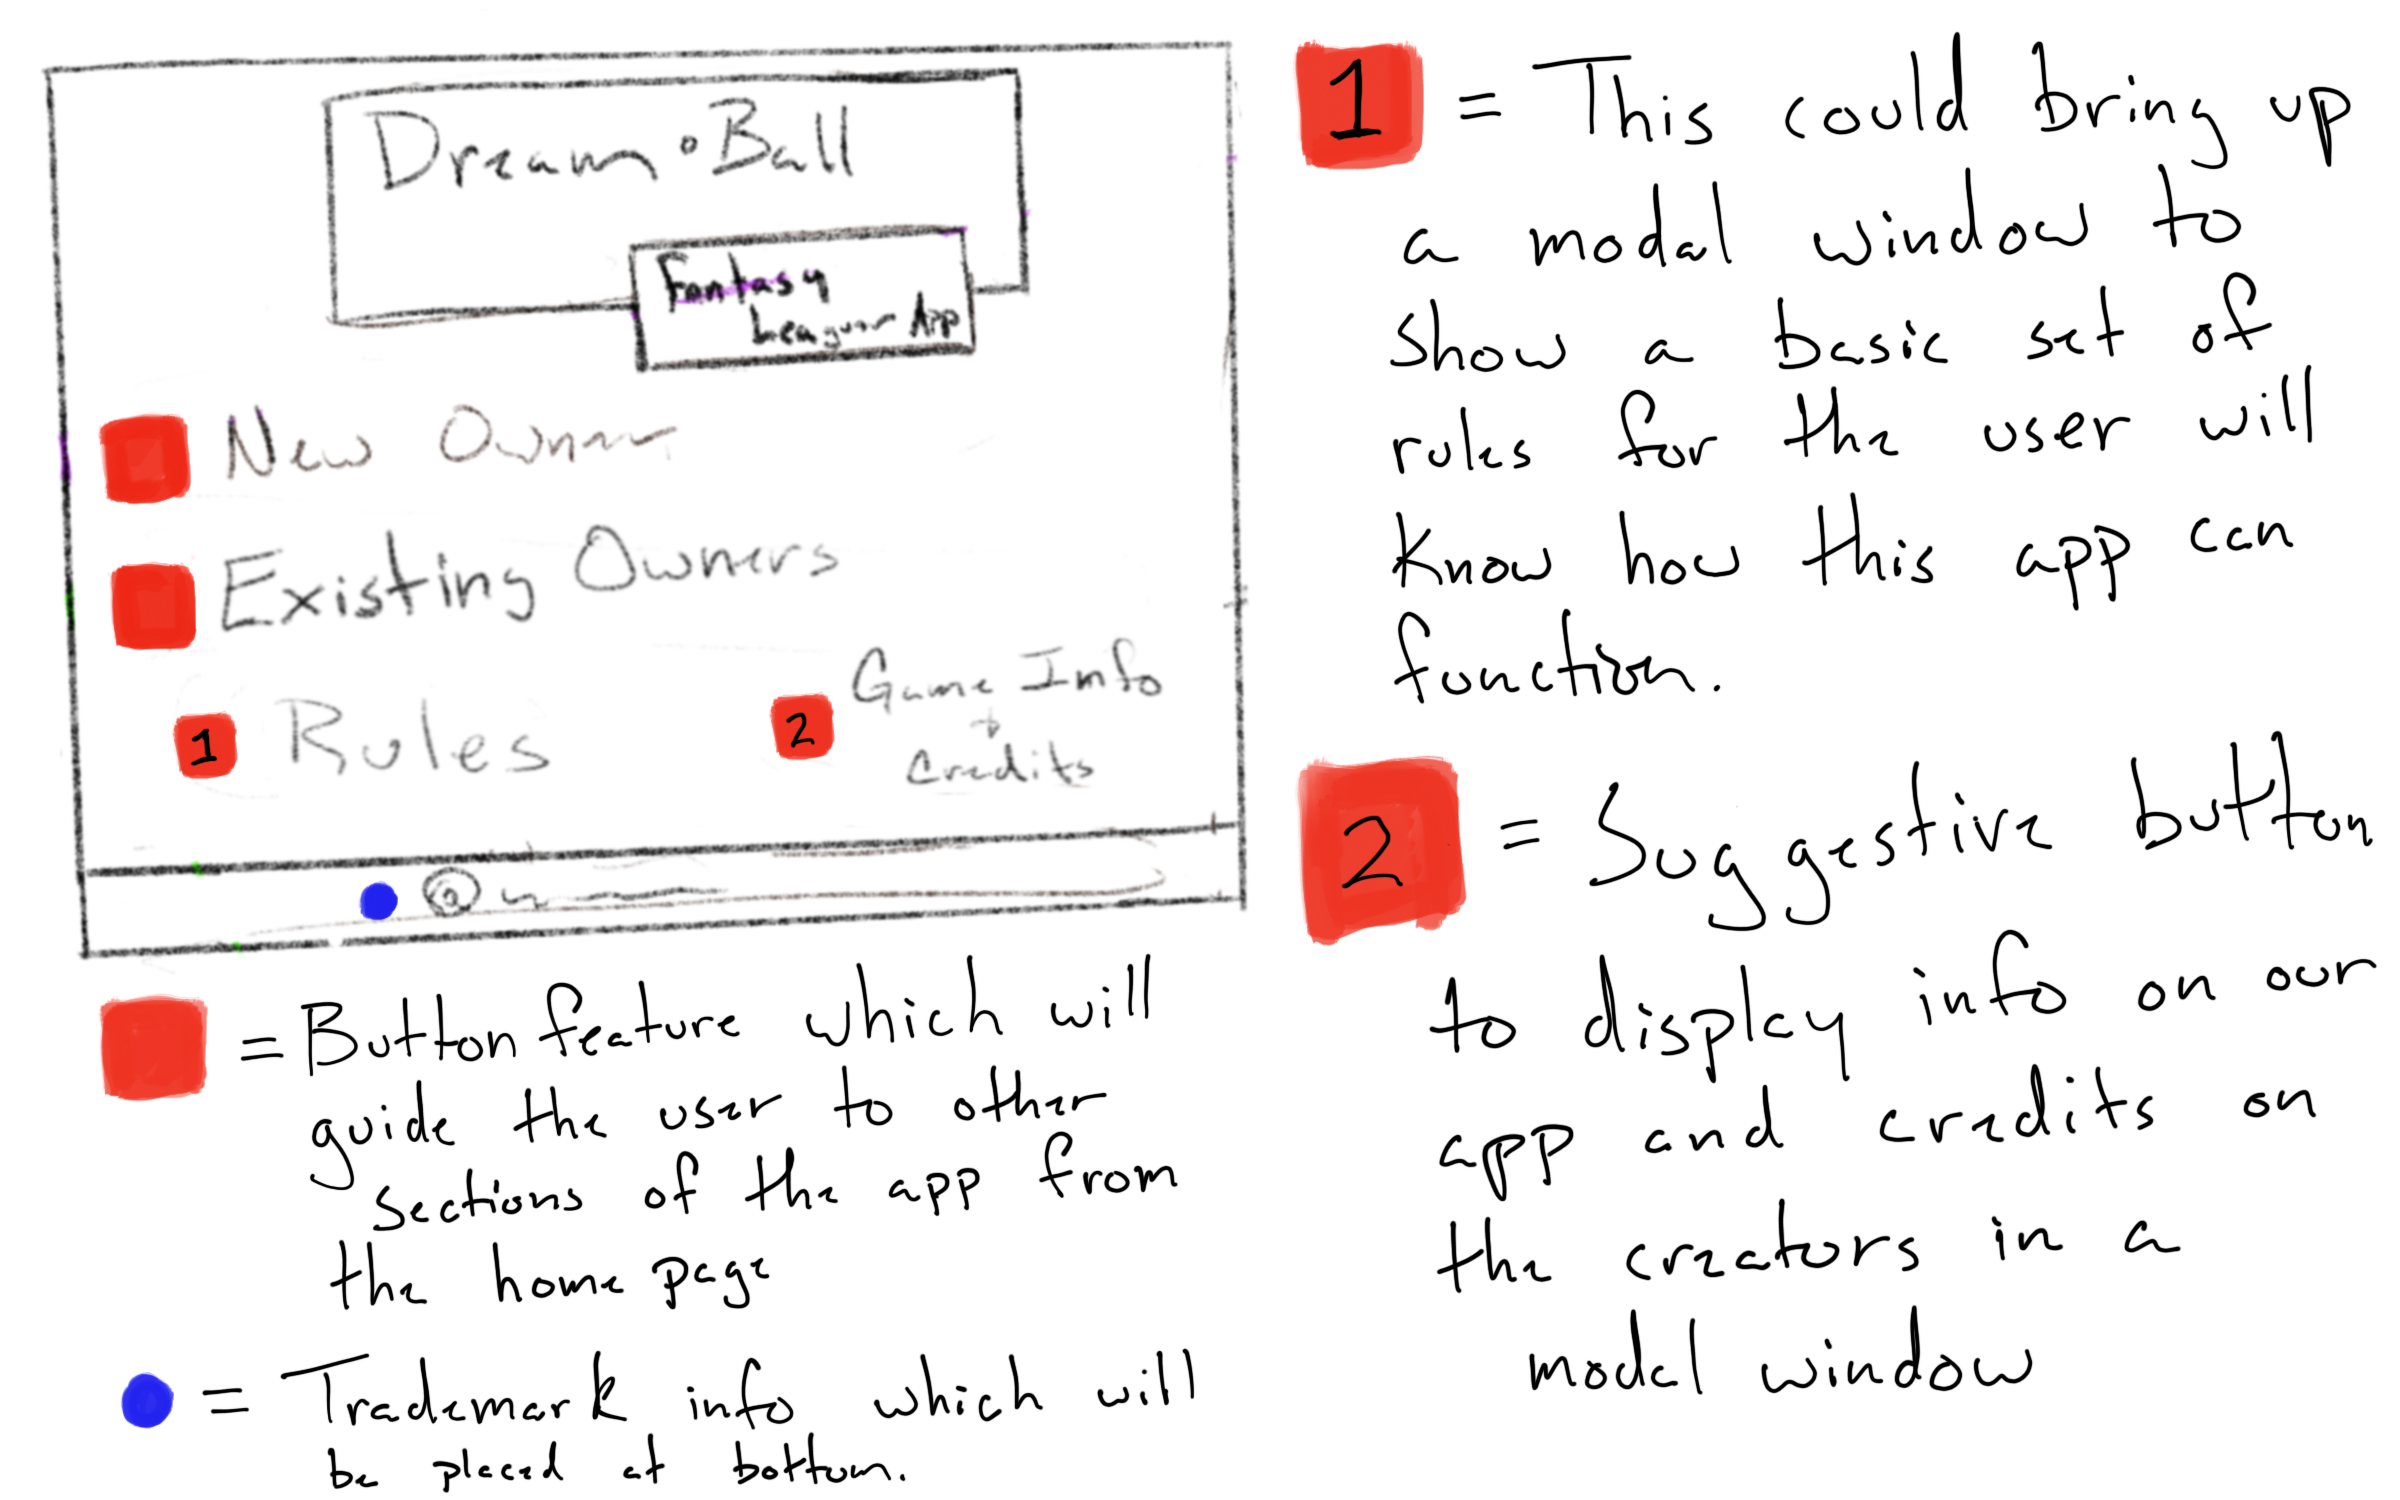 Dream • Ball
Fantasy
App
New Owner
Existing Owners
1 Rules
2 Game Info
+
Credits
= Button feature which will
guide the user to other
sections of the app from
the home page
= Trademark info which will
be placed at bottom.
1 = This could bring up
a modal window to
show a basic set of
rules for the user will
know how this app can
function.
2 = Suggestive button
to display info on our
app and credits on
the creators in a
modal window